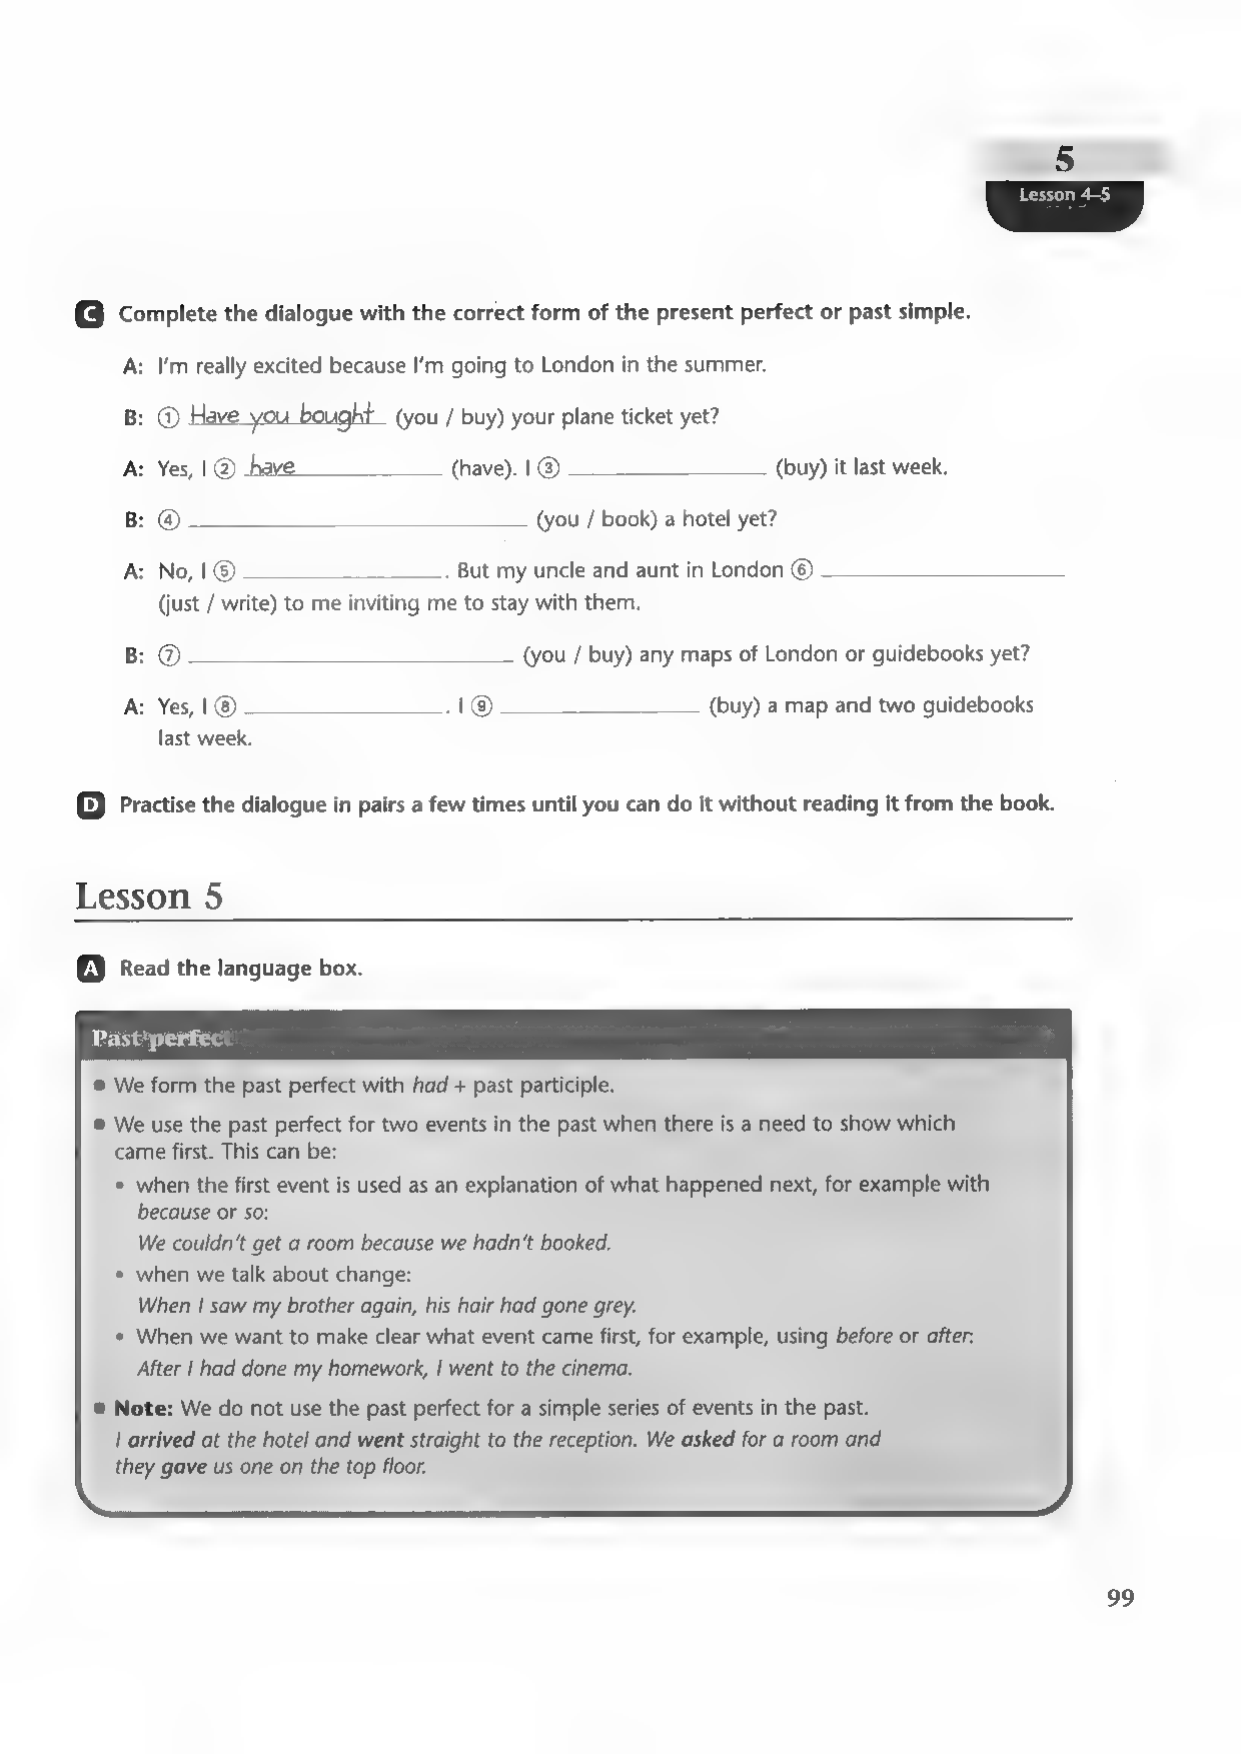 5
Lesson 4–5
C Complete the dialogue with the correct form of the present perfect or past simple.
A: I'm really excited because I'm going to London in the summer.
B: ① Have you bought (you / buy) your plane ticket yet?
A: Yes, I ② have (have). I ③ ____________ (buy) it last week.
B: ④ ____________ (you / book) a hotel yet?
A: No, I ⑤ ____________. But my uncle and aunt in London ⑥ ____________
(just / write) to me inviting me to stay with them.
B: ⑦ ____________ (you / buy) any maps of London or guidebooks yet?
A: Yes, I ⑧ ____________. I ⑨ ____________ (buy) a map and two guidebooks
last week.
D Practise the dialogue in pairs a few times until you can do it without reading it from the book.
Lesson 5
A Read the language box.
Past perfect
• We form the past perfect with had + past participle.
• We use the past perfect for two events in the past when there is a need to show which
came first. This can be:
• when the first event is used as an explanation of what happened next, for example with
because or so:
We couldn't get a room because we hadn't booked.
• when we talk about change:
When I saw my brother again, his hair had gone grey.
• When we want to make clear what event came first, for example, using before or after:
After I had done my homework, I went to the cinema.
• Note: We do not use the past perfect for a simple series of events in the past.
I arrived at the hotel and went straight to the reception. We asked for a room and
they gave us one on the top floor.
99